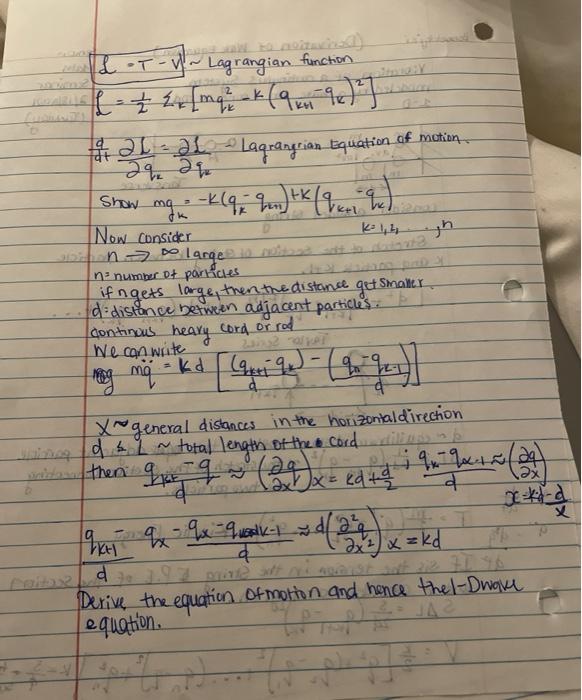 L = T - V ~ Lagrangian function
L = 1/2 Σ_k [m q̇_k^2 - k (q_{k+1} - q_k)^2]
d/dt ∂L/∂q̇_k = ∂L/∂q_k - Lagrangrian Equation of motion.
Show mq̈_k = -k(q_k - q_{k+1}) + k(q_{k+1} - q_k)
k = 1, 2, ..., n
Now consider
n → ∞ large
n = number of particles
if n gets large, then the distance get smaller.
d: distance between adjacent particles.
Continous heavy cord or rod
We can write
mq̈ = kd [(q_{k+1} - q_k)/d - (q_k - q_{k-1})/d]
X ~ general distances in the horizontal direction
d ≤ L ~ total length of the cord
then (q_{k+1} - q)/d ≈ (∂q/∂x) x = kd + d/2 ; (q_k - q_{k-1})/d ≈ (∂q/∂x)
x = kd - d/x
(q_{k+1} - q_k)/d - (q_k - q_{k-1})/d ≈ d(∂²q/∂x²) x = kd
Derive the equation of motion and hence the 1-D wave
equation.